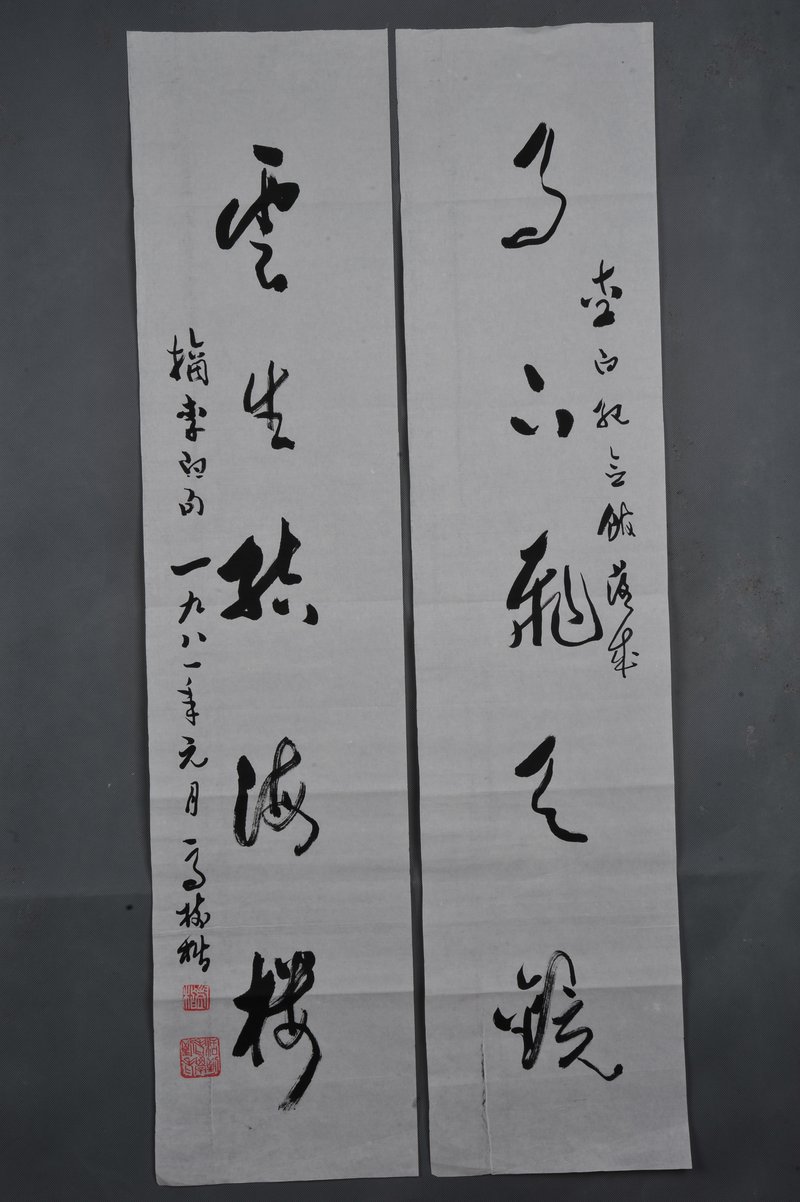 月下飛天鏡
李白紀念館落成
雲生結海樓
摘李白句 一九八一年元月 高樹楷